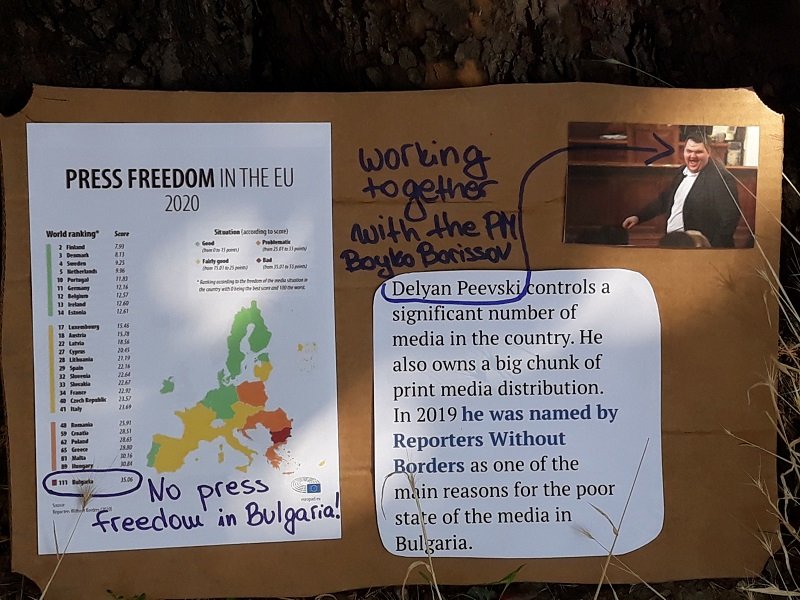 PRESS FREEDOM IN THE EU
2020
World ranking* Score
2 Finland 7.93
3 Denmark 8.13
4 Sweden 9.25
5 Netherlands 9.96
10 Portugal 11.83
11 Germany 12.16
12 Belgium 12.57
13 Ireland 12.60
14 Estonia 12.61
17 Luxembourg 15.46
18 Austria 15.78
22 Latvia 18.56
27 Cyprus 20.45
28 Lithuania 21.19
29 Spain 22.16
32 Slovenia 22.64
33 Slovakia 22.67
34 France 22.92
40 Czech Republic 23.57
41 Italy 23.69
48 Romania 25.91
59 Croatia 28.51
62 Poland 28.65
65 Greece 28.80
81 Malta 30.16
89 Hungary 30.84
111 Bulgaria 35.06
Situation (according to score)
Good
(from 0 to 15 points)
Fairly good
(from 15.01 to 25 points)
Problematic
(from 25.01 to 35 points)
Bad
(from 35.01 to 55 points)
* Ranking according to the freedom of the media situation in
the country with 0 being the best score and 100 the worst.
Source:
Reporters Without Borders
europarl.eu
No press
freedom in Bulgaria!
working
together
with the PM
Boyko Borissov
Delyan Peevski controls a
significant number of
media in the country. He
also owns a big chunk of
print media distribution.
In 2019 he was named by
Reporters Without
Borders as one of the
main reasons for the poor
state of the media in
Bulgaria.